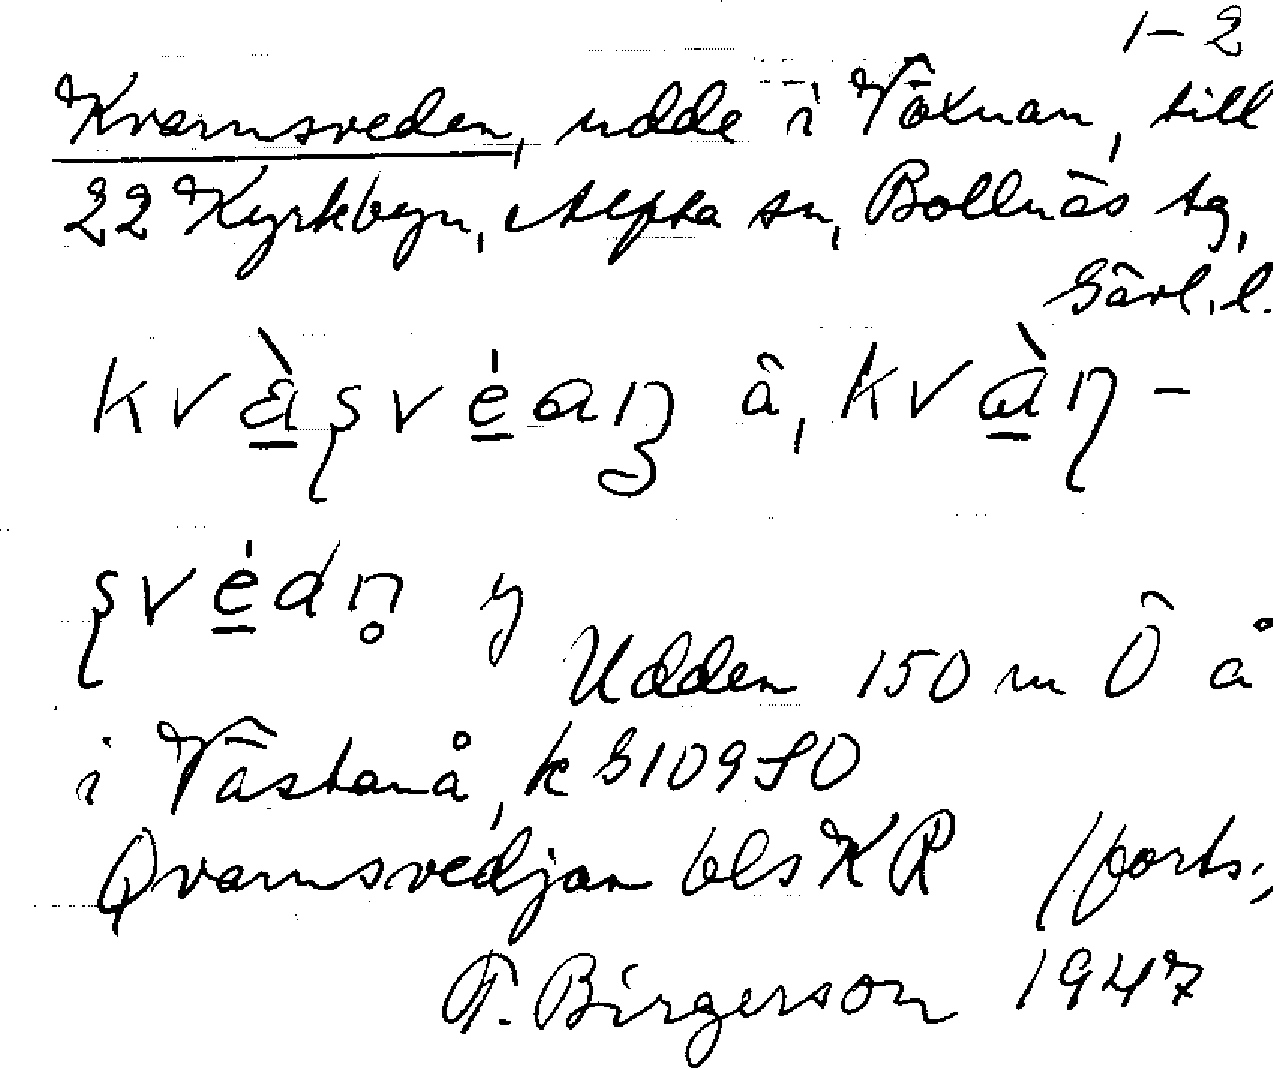 1-2
Kvarnsveden, udde i Voxnan, till
22 Kyrkbyn, Alfta sn, Bollnäs tg,
Gävl. l.
kvàʂvéaɳ â, kvàɳ-
ʂvédn̥ y
Udden 150 m Ö å
i Västanå, k G10950
Qvarnsvedjan bls KR (forts.,
F. Birgerson 1947